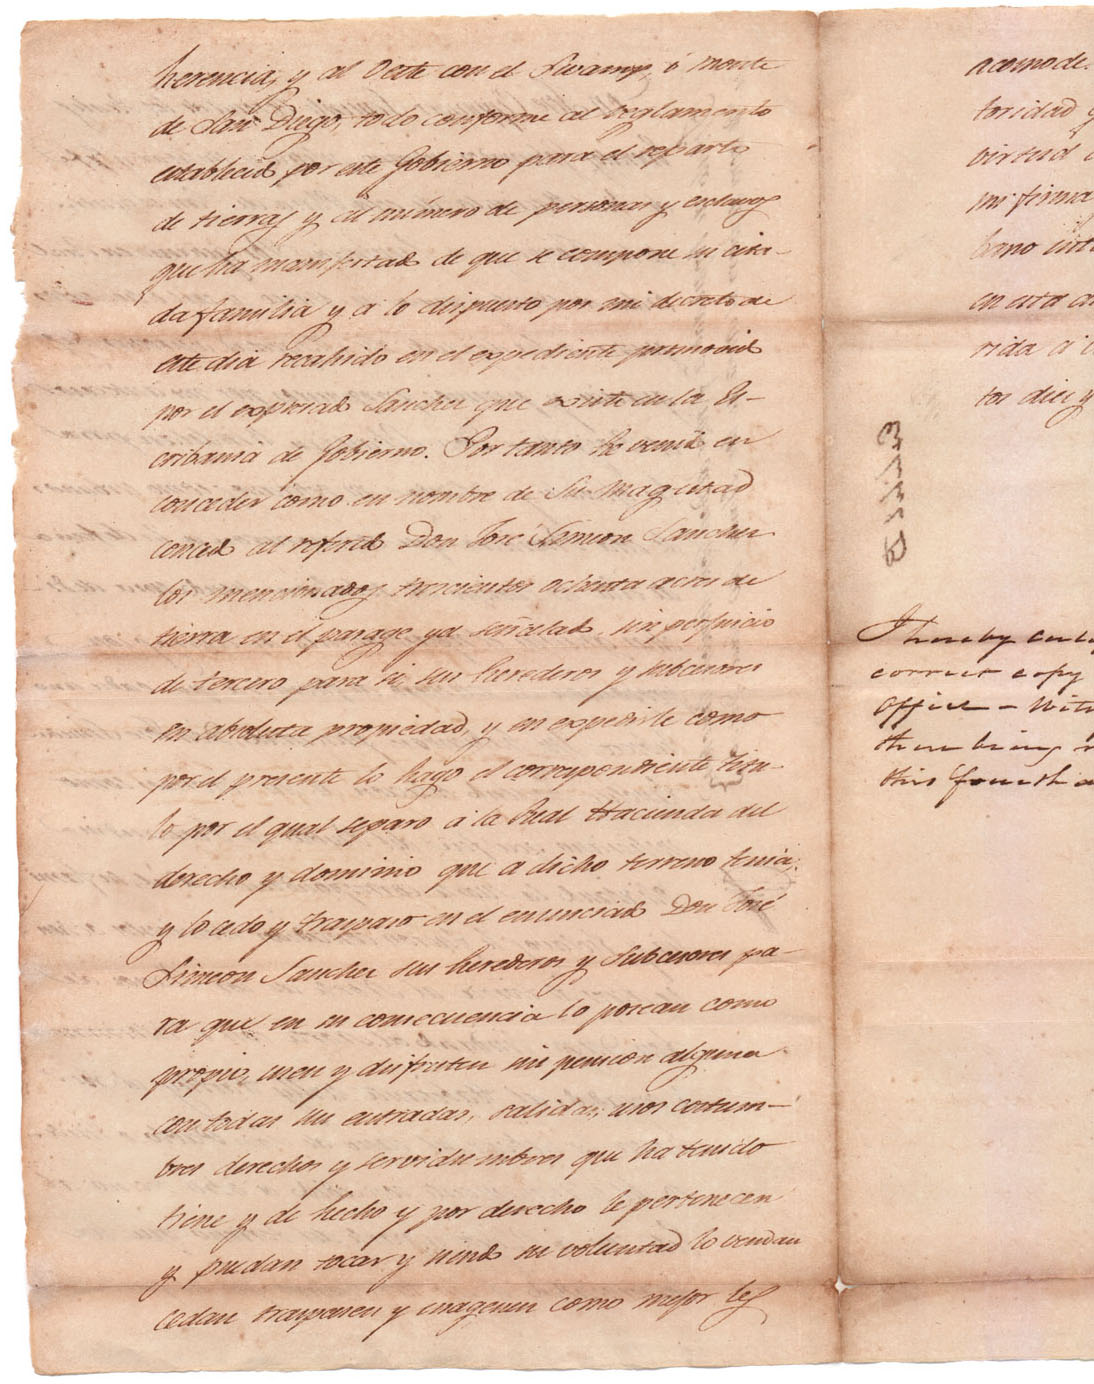 herencia, y al Oeste con el Swamp, ó Monte
de San Diego, todo conforme al reglamento
establecido por este Gobierno para el reparto
de tierras y al número de personas y esclavos
que ha manifestado de que se compone su cita-
da familia y a lo dispuesto por mi decreto de
este dia recahido en el expediente promovido
por el expresado Sanchez que existe en la Es-
cribania de Gobierno. Por tanto he venido en
conceder como en nombre de Su Magestad
concedo al referido Don José Simeon Sanchez
los mencionados trescientos ochenta acres de
tierra en el parage ya señalado, sin perjuicio
de tercero para si, sus herederos y subcesores
en absoluta propiedad, y en expedirle como
por el presente lo hago el correspondiente titu-
lo por el qual separo á la Real Hacienda del
derecho y dominio que a dicho terreno tenia,
y lo cedo y traspaso en el enunciado Don José
Simeon Sanchez sus herederos y subcesores pa-
ra que en su consecuencia lo posean como
propio, usen y disfruten sin pension alguna
con todas sus entradas, salidas, usos costum-
bres derechos y servidumbres que ha tenido
tiene y de hecho y por derecho le pertenecen
y puedan tocar y siendo su voluntad lo vendan
cedan traspasen y enagenen como mejor les
acomode.
toridad y
virtud
mi firma
bano int
en esta
rida á
tos diez y
I hereby cert
correct copy
Office - Witn
there being n
this fourth a